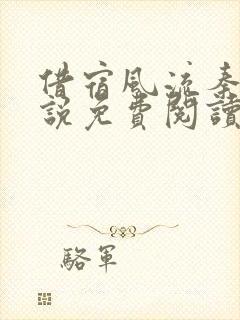 借宿風流秦
說免費閱讀
駱軍